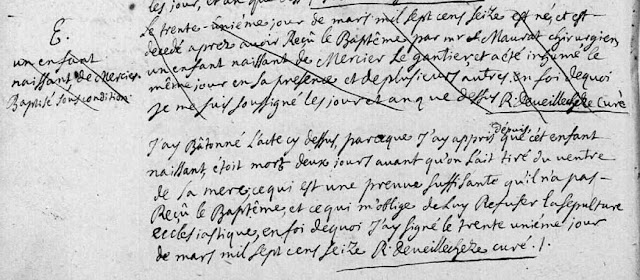 les jours et an que
E.
un enfant
naissant de Mercier
Baptisé sous condition
Le trente-uniéme jour de mars mil sept cens seize est né, et est
decedé aprez avoir Reçû le Baptême par mr Maurat chirurgien
un enfant naissant de Mercier Le gantier et a été inhumé le
même jour en sa presence et de plusieurs autres, en foi dequoi
je me suis soussigné les jour et an que dessus R. deveilhecheze curé
J'ay Bâtonné l'acte cy dessus, parceque J'ay appris depuis que cet enfant
naissant, étoit mort deux jours avant qu'on l'ait tiré du ventre
de sa mere, ce qui est une preuve suffisante qu'il n'a pas
Reçû le Baptême, et ce qui m'oblige de Luy Refuser la sepulture
ecclesiastique, en foi dequoi J'ay signé le trente uniéme jour
de mars mil sept cens seize R. deveilhecheze curé ./.